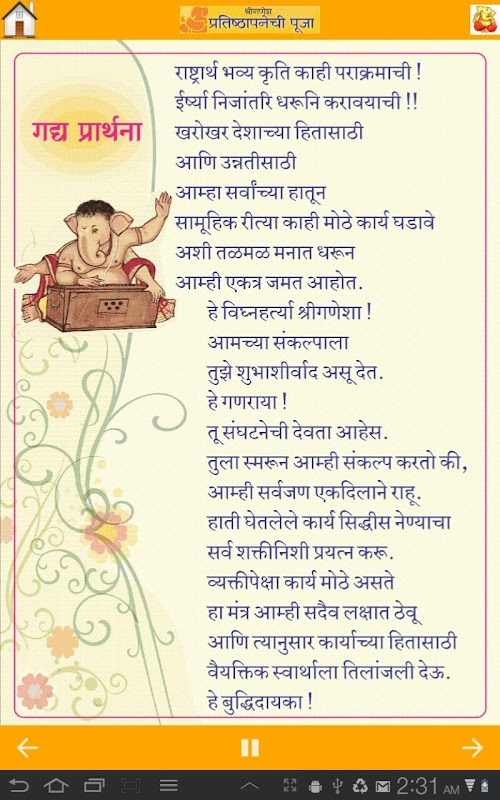 श्रीगणेश
प्रतिष्ठापनेची पूजा
गद्य प्रार्थना
राष्ट्रार्थ भव्य कृति काही पराक्रमाची !
ईर्ष्या निजांतरि धरूनि करावयाची !!
खरोखर देशाच्या हितासाठी
आणि उन्नतीसाठी
आम्हा सर्वांच्या हातून
सामूहिक रीत्या काही मोठे कार्य घडावे
अशी तळमळ मनात धरून
आम्ही एकत्र जमत आहोत.
हे विघ्नहर्त्या श्रीगणेशा !
आमच्या संकल्पाला
तुझे शुभाशीर्वाद असू देत.
हे गणराया !
तू संघटनेची देवता आहेस.
तुला स्मरून आम्ही संकल्प करतो की,
आम्ही सर्वजण एकदिलाने राहू.
हाती घेतलेले कार्य सिद्धीस नेण्याचा
सर्व शक्तीनिशी प्रयत्न करू.
व्यक्तीपेक्षा कार्य मोठे असते
हा मंत्र आम्ही सदैव लक्षात ठेवू
आणि त्यानुसार कार्याच्या हितासाठी
वैयक्तिक स्वार्थाला तिलांजली देऊ.
हे बुद्धिदायका !
2:31 AM